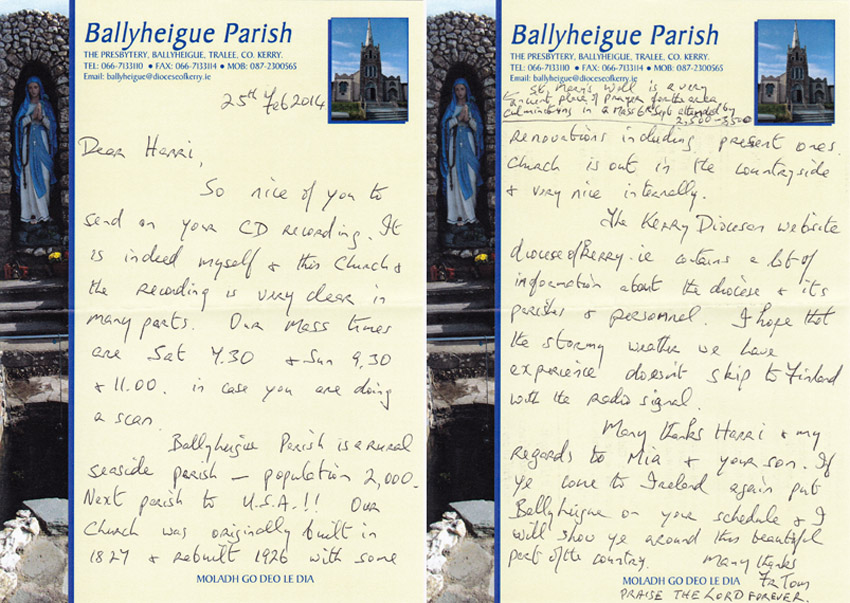 Ballyheigue Parish
THE PRESBYTERY, BALLYHEIGUE, TRALEE, CO. KERRY.
TEL: 066-7133110 • FAX: 066-7133114 • MOB: 087-2300565
Email: ballyheigue@dioceseofkerry.ie
25th Feb 2014
Dear Harri,
So nice of you to
send on your CD recording. It
is indeed myself & this Church &
the recording is very clear in
many parts. Our Mass times
are Sat 7.30 & Sun 9.30
& 11.00. in case you are doing
a scan.
Ballyheigue Parish is a rural
seaside parish – population 2,000.
Next parish to U.S.A.!! Our
Church was originally built in
1827 & rebuilt 1926 with some
MOLADH GO DEO LE DIA
Ballyheigue Parish
THE PRESBYTERY, BALLYHEIGUE, TRALEE, CO. KERRY.
TEL: 066-7133110 • FAX: 066-7133114 • MOB: 087-2300565
Email: ballyheigue@dioceseofkerry.ie
St. Mary's Well is a very
ancient place of prayer for the area
culminating in a Mass 8 Sept attended by
2,500-3,500
renovations including present ones.
Church is out in the countryside
& very nice internally.
The Kerry Diocesan website
dioceseofkerry.ie contains a lot of
information about the diocese & its
parishes & personnel. I hope that
the stormy weather we have
experience doesn't skip to Finland
with the radio signal.
Many thanks Harri & my
regards to Mia & your son. If
ye come to Ireland again put
Ballyheigue on your schedule & I
will show ye around this beautiful
part of the country. Many thanks
MOLADH GO DEO LE DIA Fr Tom
PRAISE THE LORD FOREVER.